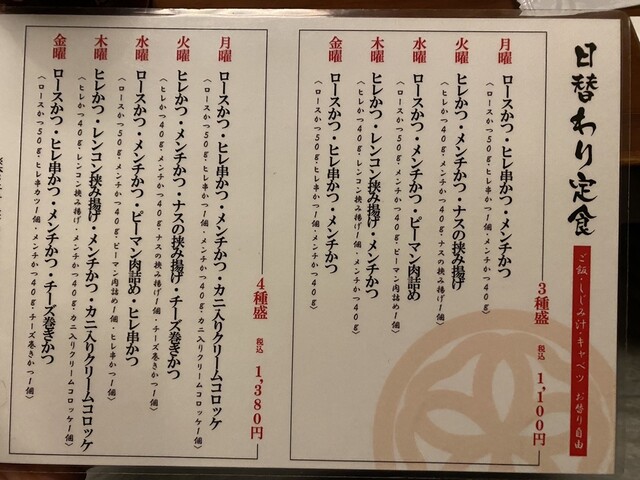 日替わり定食
ご飯・しじみ汁・キャベツ お替り自由
3種盛 税込 1,100円
月曜 ロースかつ・ヒレ串かつ・メンチかつ
（ロースかつ50g・ヒレ串かつ1個・メンチかつ40g）
火曜 ヒレかつ・メンチかつ・ナスの挟み揚げ
（ヒレかつ40g・メンチかつ40g・ナスの挟み揚げ1個）
水曜 ロースかつ・メンチかつ・ピーマン肉詰め
（ロースかつ50g・メンチかつ40g・ピーマン肉詰め1個）
木曜 ヒレかつ・レンコン挟み揚げ・メンチかつ
（ヒレかつ40g・レンコン挟み揚げ1個・メンチかつ40g）
金曜 ロースかつ・ヒレ串かつ・メンチかつ
（ロースかつ50g・ヒレ串かつ1個・メンチかつ40g）
4種盛 税込 1,380円
月曜 ロースかつ・ヒレ串かつ・メンチかつ・カニ入りクリームコロッケ
（ロースかつ50g・ヒレ串かつ1個・メンチかつ40g・カニ入りクリームコロッケ1個）
火曜 ヒレかつ・メンチかつ・ナスの挟み揚げ・チーズ巻きかつ
（ヒレかつ40g・メンチかつ40g・ナスの挟み揚げ1個・チーズ巻きかつ1個）
水曜 ロースかつ・メンチかつ・ピーマン肉詰め・ヒレ串かつ
（ロースかつ50g・メンチかつ40g・ピーマン肉詰め1個・ヒレ串かつ1個）
木曜 ヒレかつ・レンコン挟み揚げ・メンチかつ・カニ入りクリームコロッケ
（ヒレかつ40g・レンコン挟み揚げ1個・メンチかつ40g・カニ入りクリームコロッケ1個）
金曜 ロースかつ・ヒレ串かつ・メンチかつ・チーズ巻きかつ
（ロースかつ50g・ヒレ串カツ1個・メンチかつ40g・チーズ巻きかつ1個）